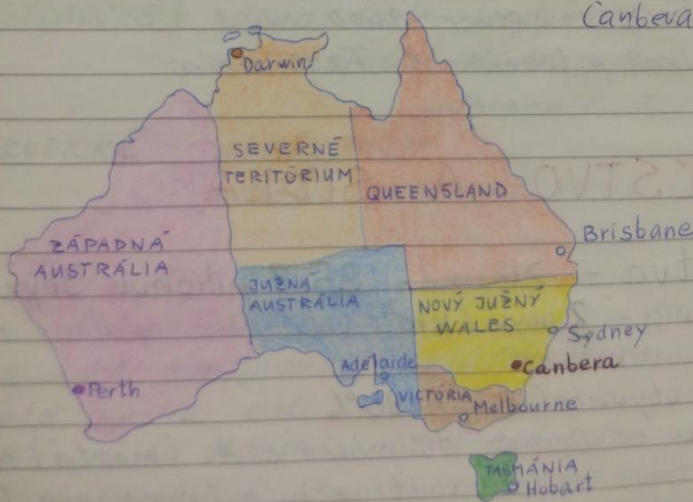 Canbera
Darwin
SEVERNÉ
TERITÓRIUM
QUEENSLAND
Brisbane
ZÁPADNÁ
AUSTRÁLIA
JUŽNÁ
AUSTRÁLIA
NOVÝ JUŽNÝ
WALES
Sydney
Adelaide
Canbera
Perth
VICTORIA
Melbourne
TASMÁNIA
Hobart